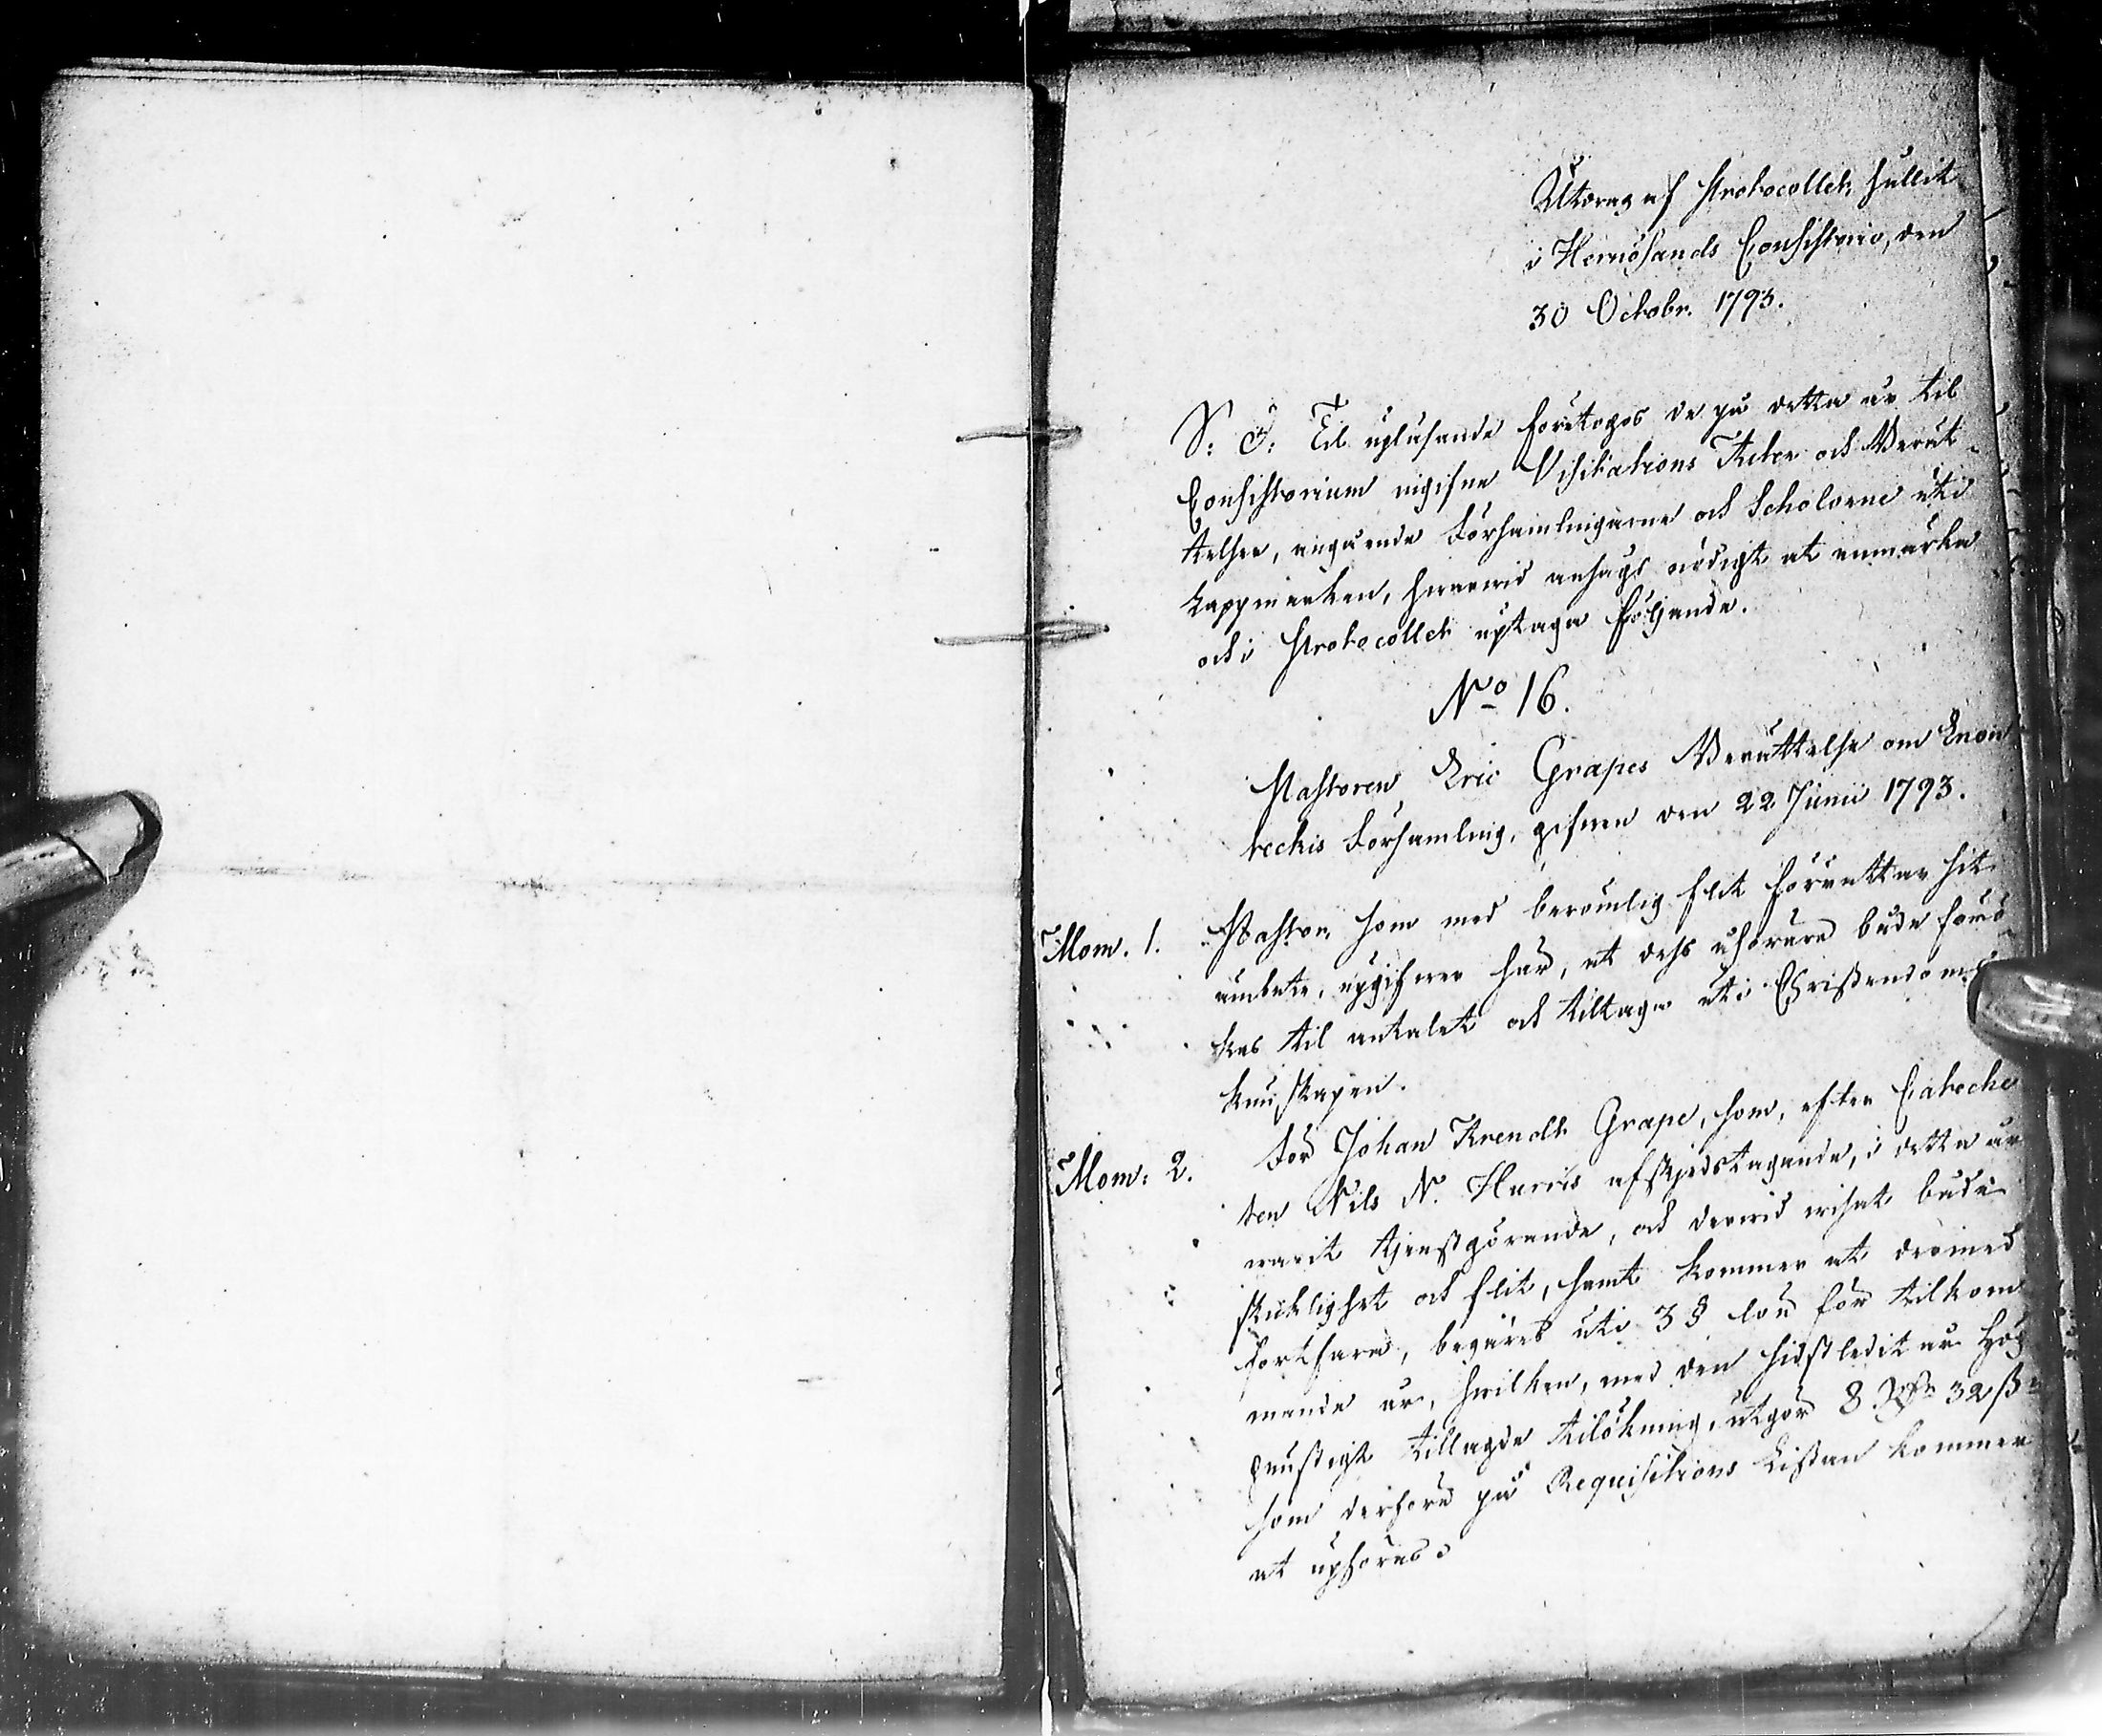 Utdrag af Protocollet, hållit
i Hernösands Consistorio, den
30 Octobr. 1793.
S: D: Til upläsande företogos de på detta år til
Consistorium ingifne Visitations Acter och Berät-
telser, angående Församlingarne och Scholorne uti
Lappmarken, hvarvid ansågs nödigt at anmärka
och i Protocollet uptaga följande.
No 16.
Pastoren Eric Grapes Berättelse om Enon
teckis Församling, gifven den 22 Junii 1793.
Mom. 1. Pastor, som med berömlig flit förrättar sit
ämbete, uppgifver här, at dess åhörare både förö-
kas til antalet och tiltaga uti Christendoms
kunskapen.
Mom: 2. För Johan Arendt Grape, som, efter Cateche
ten Nils N. Hurris afskjedstagande, i detta år
varit tjenstgörande, och dervid visat både
skicklighet och flit, samt kommer at dermed
fortfara, begäres uti 3 § lön för tilkom
mande år, hvilken, med den sidstledit år Hög
gunstigt tillagde tilökning, utgör 8 Rdr 32 ß
som derföre på Requisitions Listan kommer
at upföras